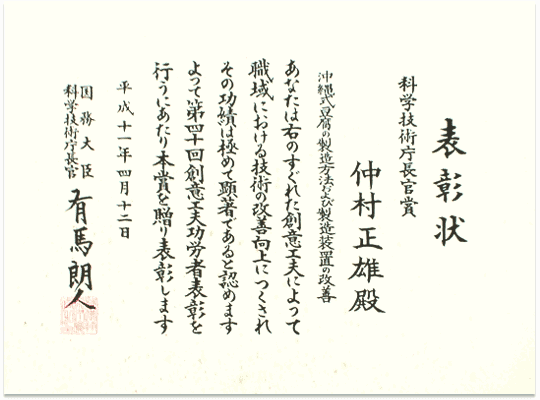 表彰状
科学技術庁長官賞
仲村正雄殿
沖縄式豆腐の製造方法および製造装置の改善
あなたは右のすぐれた創意工夫によって
職域における技術の改善向上につくされ
その功績は極めて顕著であると認めます
よって第四十回創意工夫功労者表彰を
行うにあたり本賞を贈り表彰します
平成十一年四月十二日
国務大臣
科学技術庁長官
有馬朗人